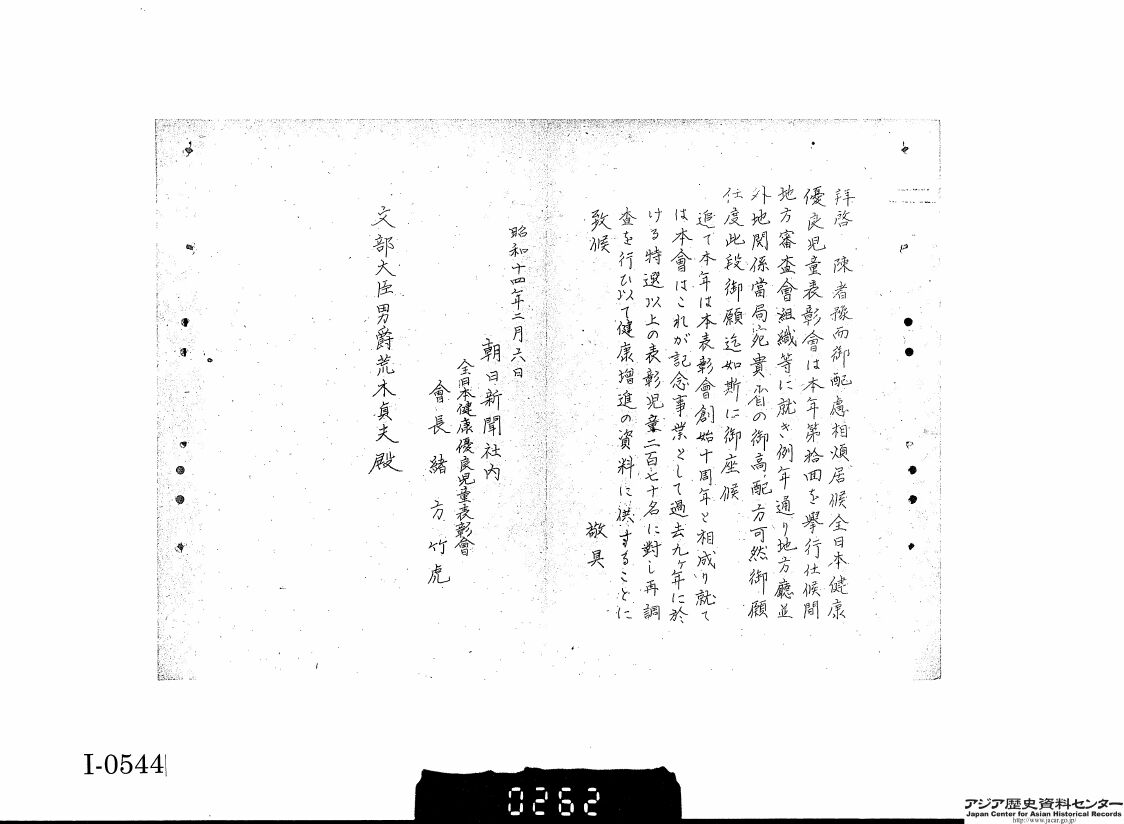 拜啓　陳者豫而御配慮相煩居候全日本健康
優良児童表彰會は本年第拾回を擧行仕候間
地方審査會組織等に就き例年通り地方廳並
外地関係當局宛貴省の御高配方可然御願
仕度此段御願迄如斯に御座候
追て本年は本表彰會創始十周年と相成り就て
は本會はこれが記念事業として過去九ヶ年に於
ける特選以上の表彰児童二百七十名に對し再調
査を行ひ以て健康増進の資料に供することに
致候
敬具
昭和十四年二月六日
朝日新聞社内
全日本健康優良児童表彰會
會長　緒方竹虎
文部大臣男爵荒木貞夫殿
I-0544
0262
アジア歴史資料センター
Japan Center for Asian Historical Records
http://www.jacar.go.jp/